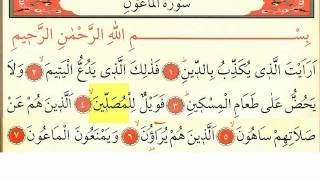 سُورَةُ الْمَاعُونِ
بِسْمِ اللّٰهِ الرَّحْمٰنِ الرَّحِيمِ
اَرَاَيْتَ الَّذِى يُكَذِّبُ بِالدِّينِ ﴿١﴾ فَذٰلِكَ الَّذِى يَدُعُّ الْيَتِيمَ ﴿٢﴾ وَلَا
يَحُضُّ عَلٰى طَعَامِ الْمِسْكِينِ ﴿٣﴾ فَوَيْلٌ لِلْمُصَلِّينَ ﴿٤﴾ اَلَّذِينَ هُمْ عَنْ
صَلَاتِهِمْ سَاهُونَ ﴿٥﴾ اَلَّذِينَ هُمْ يُرَاؤُنَ ﴿٦﴾ وَيَمْنَعُونَ الْمَاعُونَ ﴿٧﴾